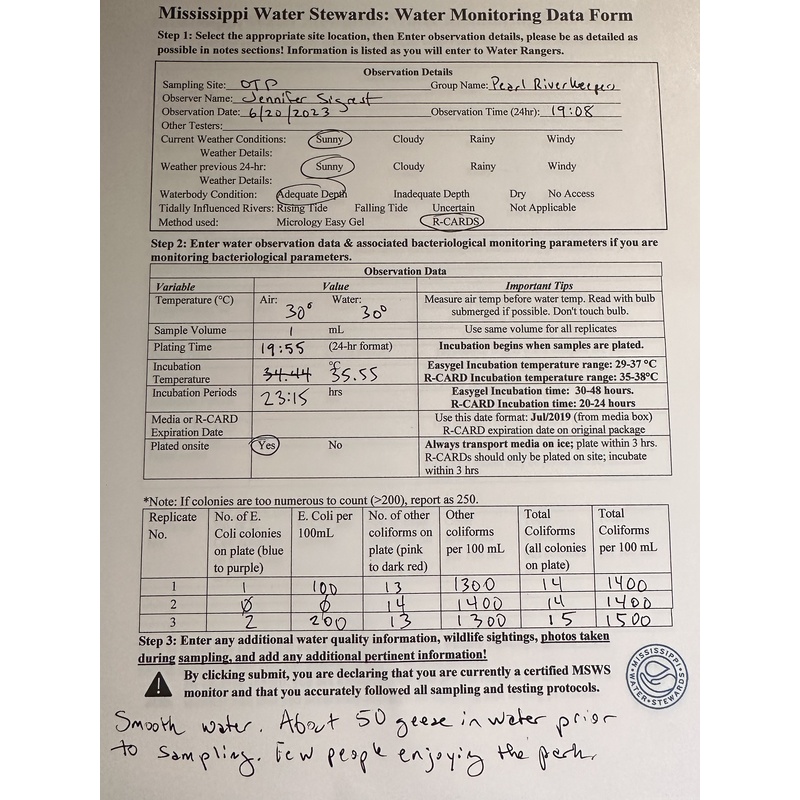 Mississippi Water Stewards: Water Monitoring Data Form
Step 1: Select the appropriate site location, then Enter observation details, please be as detailed as
possible in notes sections! Information is listed as you will enter to Water Rangers.
Observation Details
Sampling Site: OTP Group Name: Pearl Riverkeeper
Observer Name: Jennifer Sigrest
Observation Date: 6/20/2023 Observation Time (24hr): 19:08
Other Testers:
Current Weather Conditions: Sunny Cloudy Rainy Windy
Weather Details:
Weather previous 24-hr: Sunny Cloudy Rainy Windy
Weather Details:
Waterbody Condition: Adequate Depth Inadequate Depth Dry No Access
Tidally Influenced Rivers: Rising Tide Falling Tide Uncertain Not Applicable
Method used: Micrology Easy Gel R-CARDS
Step 2: Enter water observation data & associated bacteriological monitoring parameters if you are
monitoring bacteriological parameters.
Observation Data
Variable Value Important Tips
Temperature (°C) Air: 30° Water: 30° Measure air temp before water temp. Read with bulb
submerged if possible. Don't touch bulb.
Sample Volume 1 mL Use same volume for all replicates
Plating Time 19:55 (24-hr format) Incubation begins when samples are plated.
Incubation Temperature 34.44 °C 35.55 Easygel Incubation temperature range: 29-37 °C
R-CARD Incubation temperature range: 35-38°C
Incubation Periods 23:15 hrs Easygel Incubation time: 30-48 hours.
R-CARD Incubation time: 20-24 hours
Media or R-CARD Expiration Date Use this date format: Jul/2019 (from media box)
R-CARD expiration date on original package
Plated onsite Yes No Always transport media on ice; plate within 3 hrs.
R-CARDs should only be plated on site; incubate
within 3 hrs
*Note: If colonies are too numerous to count (>200), report as 250.
Replicate No. No. of E. Coli colonies on plate (blue to purple) E. Coli per 100mL No. of other coliforms on plate (pink to dark red) Other coliforms per 100 mL Total Coliforms (all colonies on plate) Total Coliforms per 100 mL
1 1 100 13 1300 14 1400
2 0 0 14 1400 14 1400
3 2 200 13 1300 15 1500
Step 3: Enter any additional water quality information, wildlife sightings, photos taken
during sampling, and add any additional pertinent information!
By clicking submit, you are declaring that you are currently a certified MSWS
monitor and that you accurately followed all sampling and testing protocols.
MISSISSIPPI WATER STEWARDS
Smooth water. About 50 geese in water prior
to sampling. Few people enjoying the park.